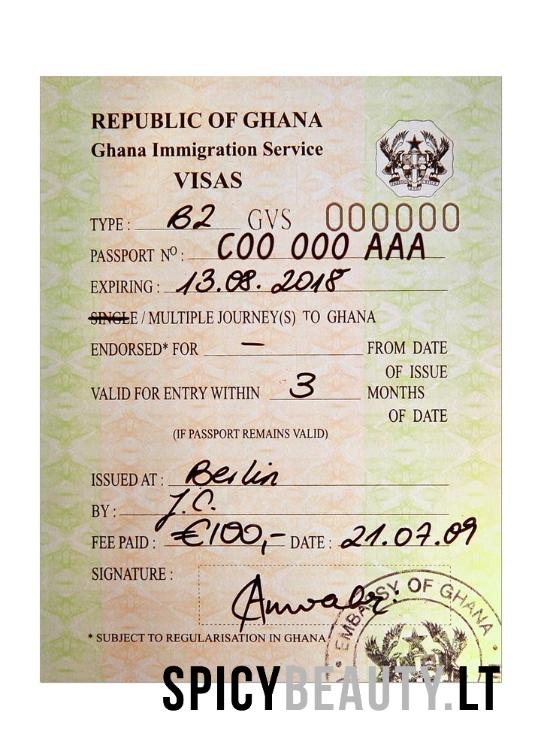 REPUBLIC OF GHANA
Ghana Immigration Service
VISAS
TYPE : B2 GVS 000000
PASSPORT Nº : C00 000 AAA
EXPIRING : 13.08.2018
SINGLE / MULTIPLE JOURNEY(S) TO GHANA
ENDORSED* FOR — FROM DATE
OF ISSUE
VALID FOR ENTRY WITHIN 3 MONTHS
OF DATE
(IF PASSPORT REMAINS VALID)
ISSUED AT : Berlin
BY : J.C.
FEE PAID : €100,- DATE : 21.07.09
SIGNATURE :
EMBASSY OF GHANA
* SUBJECT TO REGULARISATION IN GHANA
SPICYBEAUTY.LT